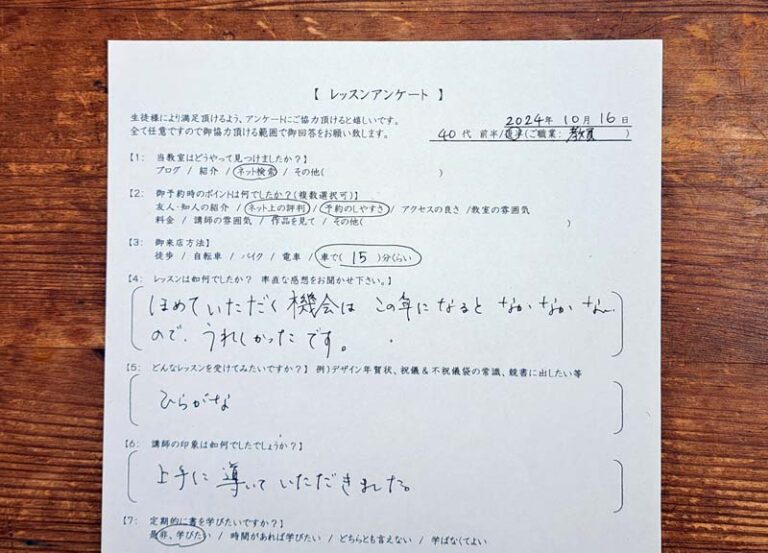 【 レッスンアンケート 】
生徒様により満足頂けるよう、アンケートにご協力頂けると嬉しいです。
全て任意ですので御協力頂ける範囲で御回答をお願い致します。
2024年 10月 16日
40代 前半/後半(ご職業: 教員 )
【1: 当教室はどうやって見つけましたか?】
ブログ / 紹介 / ネット検索 / その他( )
【2: 御予約時のポイントは何でしたか?(複数選択可)】
友人・知人の紹介 / ネット上の評判 / 予約のしやすさ / アクセスの良さ /教室の雰囲気
料金 / 講師の雰囲気 / 作品を見て / その他( )
【3: 御来店方法】
徒歩 / 自転車 / バイク / 電車 / 車で( 15 )分くらい
【4: レッスンは如何でしたか? 率直な感想をお聞かせ下さい。】
ほめていただく機会は この年になると なかなかなん
ので、うれしかったです。
【5: どんなレッスンを受けてみたいですか? 例)デザイン年賀状、祝儀&不祝儀袋の常識、競書に出したい等
ひらがな
【6: 講師の印象は如何でしたでしょうか?】
上手に導いていただきました。
【7: 定期的に書を学びたいですか?】
是非、学びたい / 時間があれば学びたい / どちらとも言えない / 学ばなくてよい